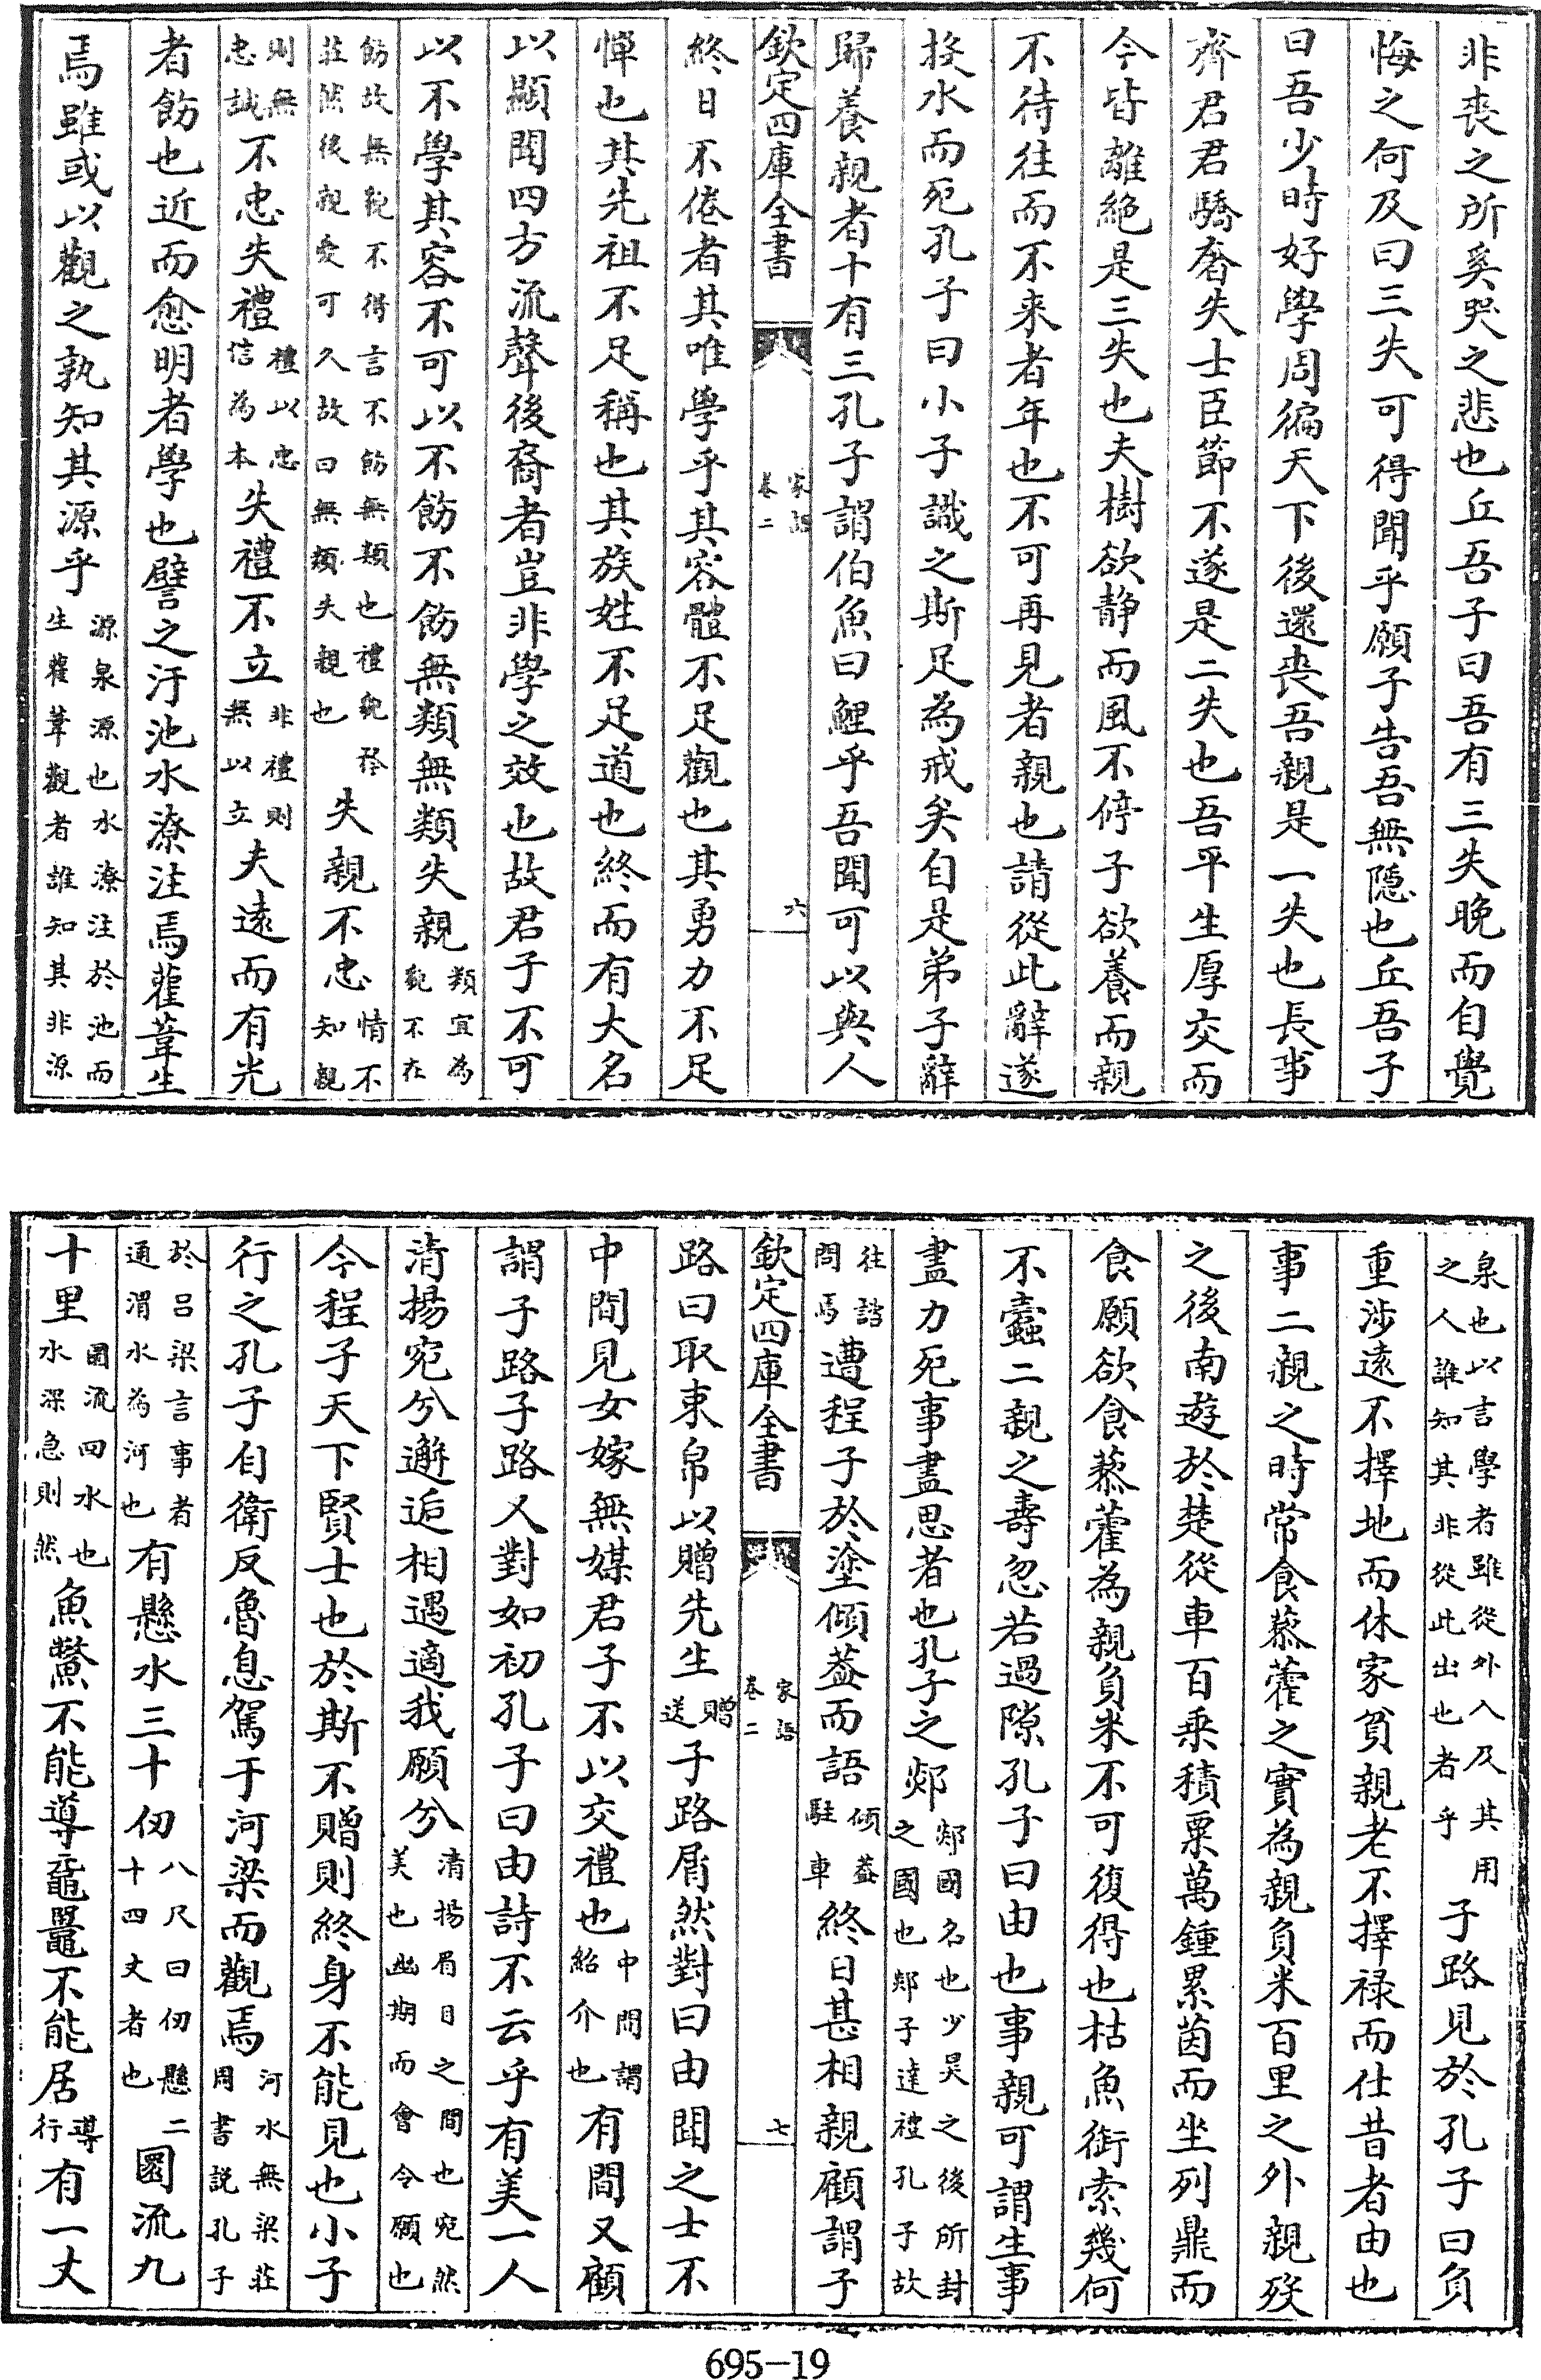 非喪之所奚哭之悲也丘吾子曰吾有三失晚而自覺
悔之何及曰三失可得聞乎願子告吾無隠也丘吾子
曰吾少時好學周徧天下後還喪吾親是一失也長事
齊君君驕奢失士臣節不遂是二失也吾平生厚交而
今皆離絶是三失也夫樹欲静而風不停子欲養而親
不待往而不来者年也不可再見者親也請從此辭遂
投水而死孔子曰小子識之斯足為戒矣自是弟子辭
歸養親者十有三孔子謂伯魚曰鯉乎吾聞可以與人
欽定四庫全書 家語卷二 六
終日不倦者其唯學乎其容體不足觀也其勇力不足
憚也其先祖不足稱也其族姓不足道也終而有大名
以顯聞四方流聲後裔者豈非學之效也故君子不可
以不學其容不可以不飭不飭無類無類失親類宜為貌不在
飭故無貌不得言不飭無類也禮貌矜莊然後親愛可久故曰無類失親也失親不忠情不知親
則無忠誠不忠失禮禮以忠信為本失禮不立非禮則無以立夫逺而有光
者飭也近而愈明者學也譬之汙池水潦注焉雚葦生
焉雖或以觀之孰知其源乎源泉源也水潦注於池而生雚葦觀者誰知其非源
泉也以言學者雖從外入及其用之人誰知其非從此出也者乎子路見於孔子曰負
重涉逺不擇地而休家貧親老不擇禄而仕昔者由也
事二親之時常食藜藿之實為親負米百里之外親殁
之後南遊於楚從車百乘積粟萬鍾累茵而坐列鼎而
食願欲食藜藿為親負米不可復得也枯魚銜索幾何
不蠹二親之壽忽若過隙孔子曰由也事親可謂生事
盡力死事盡思者也孔子之郯郯國名也少昊之後所封之國也郯子達禮孔子故
往諮問焉遭程子於塗傾葢而語傾葢駐車終日甚相親顧謂子
欽定四庫全書 家語卷二 七
路曰取束帛以贈先生贈送子路屑然對曰由聞之士不
中間見女嫁無媒君子不以交禮也中間謂紹介也有間又顧
謂子路子路又對如初孔子曰由詩不云乎有美一人
清揚宛兮邂逅相遇適我願兮清揚眉目之間也宛然美也幽期而會令願也
今程子天下賢士也於斯不贈則終身不能見也小子
行之孔子自衛反魯息駕于河梁而觀焉河水無梁莊周書説孔子
於吕梁言事者通渭水為河也有懸水三十仞八尺曰仞懸二十四丈者也圜流九
十里圜流回水也水深急則然魚鱉不能導黿鼉不能居導行有一丈
695–19